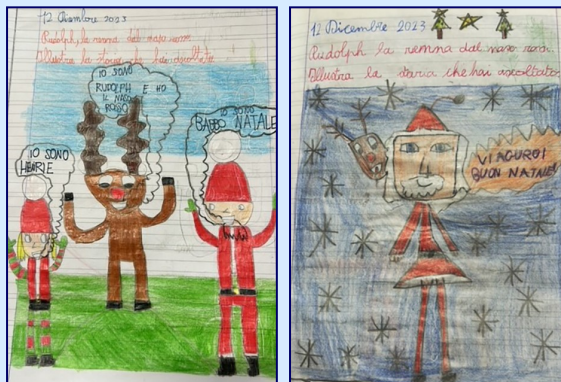 12 Dicembre 2023
Rudolph, la renna dal naso rosso.
Illustra la storia che hai ascoltato
IO SONO
RUDOLPH E HO
IL NASO
ROSSO
IO SONO
BABBO NATALE
IO SONO
12 Dicembre 2023
Rudolph la renna dal naso rosso.
Illustra la storia che hai ascoltato.
VI AGURO!
BUON NATALE!